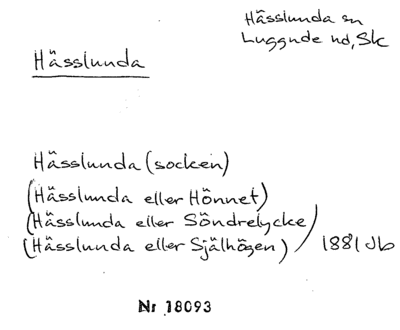 Hässlunda sn
Luggude hd, Sk
Hässlunda
Hässlunda (socken)
(Hässlunda eller Hönnet)
(Hässlunda eller Söndrelycke)
(Hässlunda eller Själhögen) 1881 Jb
Nr 18093